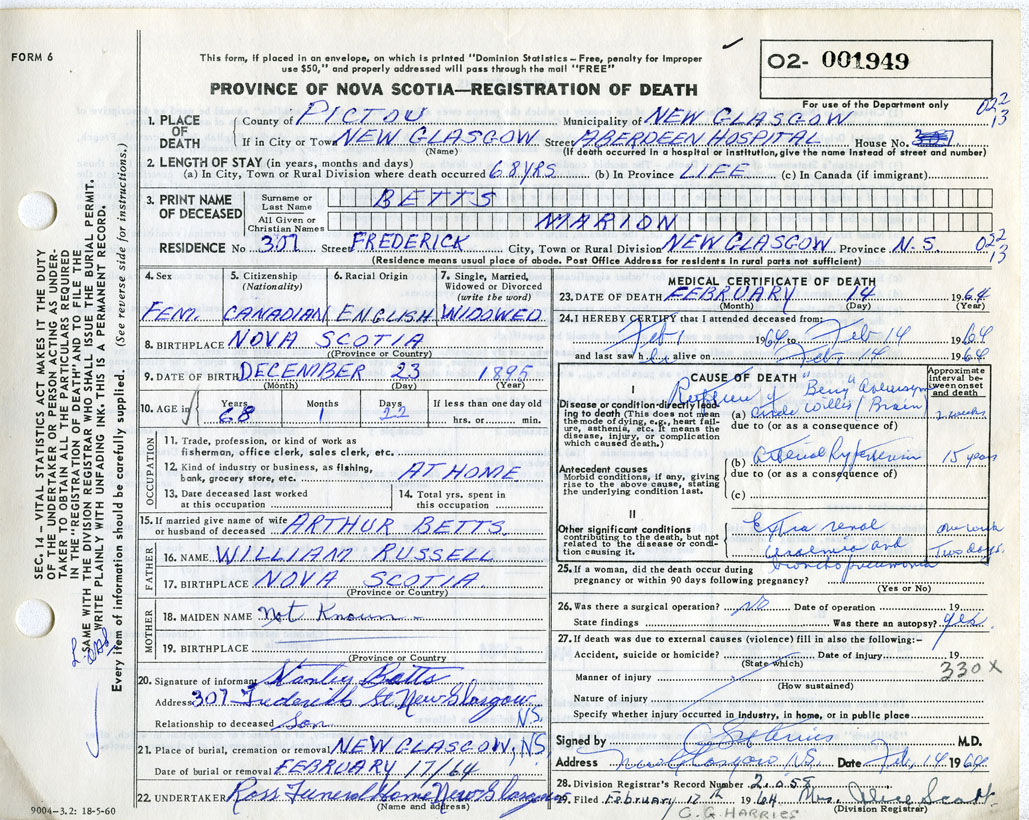 FORM 6
This form, if placed in an envelope, on which is printed "Dominion Statistics – Free, penalty for Improper
use $50," and properly addressed will pass through the mail "FREE"
O2- 001949
PROVINCE OF NOVA SCOTIA—REGISTRATION OF DEATH
For use of the Department only
022
13
1. PLACE OF DEATH
County of PICTOU Municipality of NEW GLASGOW
If in City or Town NEW GLASGOW Street ABERDEEN HOSPITAL House No.
(Name) (If death occurred in a hospital or institution, give the name instead of street and number)
2. LENGTH OF STAY (in years, months and days)
(a) In City, Town or Rural Division where death occurred 68 YRS (b) In Province LIFE (c) In Canada (if immigrant)
3. PRINT NAME OF DECEASED
Surname or Last Name BETTS
All Given or Christian Names MARION
RESIDENCE No 307 Street FREDERICK City, Town or Rural Division NEW GLASGOW Province N.S. 022
13
(Residence means usual place of abode. Post Office Address for residents in rural parts not sufficient)
4. Sex
FEM.
5. Citizenship
(Nationality)
CANADIAN
6. Racial Origin
ENGLISH
7. Single, Married,
Widowed or Divorced
(write the word)
WIDOWED
8. BIRTHPLACE NOVA SCOTIA
((Province or Country)
9. DATE OF BIRTH DECEMBER 23 1895
(Month) (Day) (Year)
10. AGE in
Years Months Days If less than one day old
68 1 22 hrs. or min.
OCCUPATION
11. Trade, profession, or kind of work as
fisherman, office clerk, sales clerk, etc.
12. Kind of industry or business, as fishing,
bank, grocery store, etc. AT HOME
13. Date deceased last worked
at this occupation
14. Total yrs. spent in
this occupation
15. If married give name of wife
or husband of deceased ARTHUR BETTS.
FATHER
16. NAME WILLIAM RUSSELL
17. BIRTHPLACE NOVA SCOTIA
(Province or Country)
MOTHER
18. MAIDEN NAME Not Known
19. BIRTHPLACE
(Province or Country)
20. Signature of informant Betts
Address 307 Frederick St. New Glasgow
N.S.
Relationship to deceased Son
21. Place of burial, cremation or removal NEW GLASGOW, N.S.
Date of burial or removal FEBRUARY 17/64
22. UNDERTAKER Ross Funeral Home New Glasgow
(Name and address)
9004—3.2: 18-5-60
MEDICAL CERTIFICATE OF DEATH
23. DATE OF DEATH FEBRUARY 14 1964
(Month) (Day) (Year)
24. I HEREBY CERTIFY that I attended deceased from:
Feb 1 1964 to Feb 14 1964
and last saw her alive on Feb. 14 1964
CAUSE OF DEATH
Approximate
interval be-
tween onset
and death
I
Disease or condition directly lead-
ing to death (This does not mean
the mode of dying, e.g., heart fail-
ure, asthenia, etc. It means the
disease, injury, or complication
which caused death.)
Rupture of "Berry" Aneurysm
(a) Circle Willis / Brain 2 weeks
due to (or as a consequence of)
Antecedent causes
Morbid conditions, if any, giving
rise to the above cause, stating
the underlying condition last.
(b) Arterial Hypertension 15 years
due to (or as a consequence of)
(c)
II
Other significant conditions
contributing to the death, but not
related to the disease or condi-
tion causing it.
Extra renal one week
uraemia and Two days.
bronchopneumonia
25. If a woman, did the death occur during
pregnancy or within 90 days following pregnancy?
(Yes or No)
26. Was there a surgical operation? No Date of operation 19
State findings Was there an autopsy? Yes.
27. If death was due to external causes (violence) fill in also the following:—
Accident, suicide or homicide? Date of Injury 19
(State which)
330X
Manner of injury
(How sustained)
Nature of injury
Specify whether injury occurred in industry, in home, or in public place
Signed by M.D.
Address New Glasgow N.S. Date Feb. 14 1964
28. Division Registrar's Record Number 2058
29. Filed February 17th 1964 Mrs. Alice Scott
(Division Registrar)
C. G. HARRIES
SEC. 14 — VITAL STATISTICS ACT MAKES IT THE DUTY
OF THE UNDERTAKER OR PERSON ACTING AS UNDER-
TAKER TO OBTAIN ALL THE PARTICULARS REQUIRED
IN THE "REGISTRATION OF DEATH" AND TO FILE THE
SAME WITH THE DIVISION REGISTRAR WHO SHALL ISSUE THE BURIAL PERMIT.
WRITE PLAINLY WITH UNFADING INK. THIS IS A PERMANENT RECORD.
Every item of information should be carefully supplied. (See reverse side for instructions.)